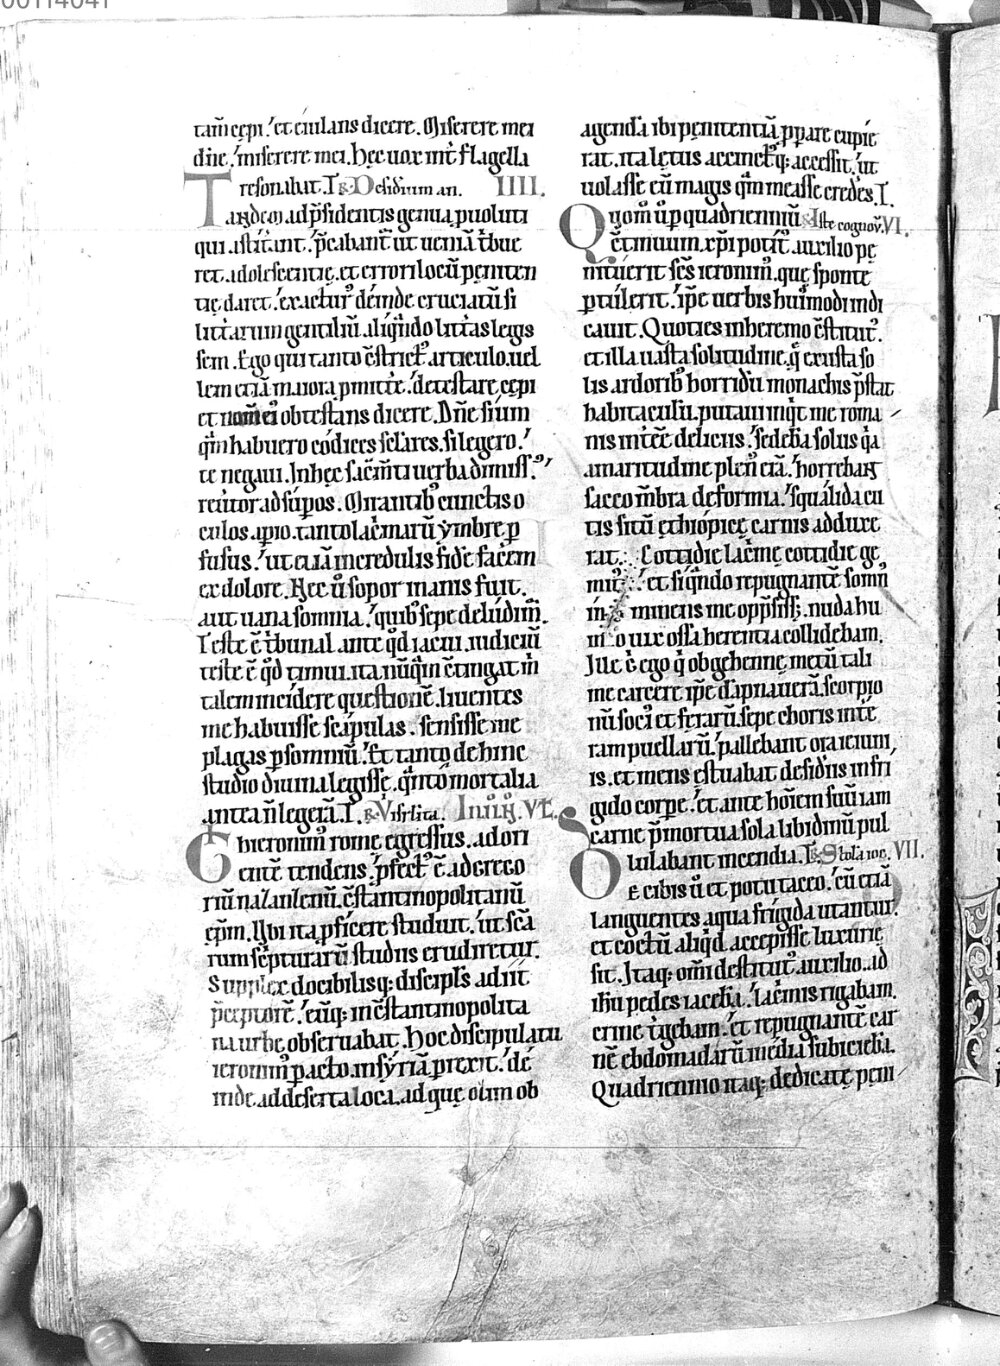 00114041
tam cępi. et eiulans dicere. Miserere mei
dñe. miserere mei. hęc uox int̃ flagella
resonabat. I. R. Desiderium an. IIII.
Tandem ad p̃sidentis genua puoluti
qui astit̃ant. p̃cabant̃ ut ueniã t̃bue
ret adolescentię. et errori locũ peniten
tię daret. exactur᷒ deinde cruciatũ si
litt̃arum gentiliũ aliqñdo litt̃as legis
sem. Ego qui tanto cc̃strict᷒ articulo. uel
lem etiã maiora pmitt̃e. detestare cępi
et nom̃ ei obtestans dicere. Dñe si um
qm̃ habuero códices sclares. si legero.
te negaui. In hęc sac̃mti uerba dimiss᷒.
reũtor ad sup̃os. Mirantib᷒ cunctis o
culos apio. tanto lac̃marũ ymbre p
fusus. ut etiã incredulis fidẽ facẽm
ex dolore. Nec ũ sopor inanis fuit.
aut uana somnia. quib᷒ sepe deludim̃.
Teste ẽ t̃bunal ante qd̃ iacui. iudiciũ
teste ẽ qd̃ timui. ita nũqm̃ cc̃tingat m̃
talem incidere questionẽ. liuentes
me habuisse scapulas. sensisse me
plagas p somniũ. Et tanto dehinc
studio diuina legisse. qñto mortalia
antea ñ legerã. I. R. Visitita. V.
Ghieronim᷒ rome egressus. ad ori
entẽ tendens. p̃fect᷒ ẽ ad grego
riũ nazanzenũ. cc̃stantinopolitanũ
ep̃m. Vbi ita pficere studuit. ut scã
rum sc̃pturarũ studiis erudiretur.
Supplex docibilisq; discipl̃s adiit
p̃ceptorẽ. eũq; in cc̃stantinopolita
na urbe obseruabat. Hoc discipulatu
ieronim᷒ pacto. in sýriã prexit. de
inde. ad deserta loca. ad que olim ob
agenda ibi penitentiã ppare cupie
rat. ita letus accinct᷒q; accessit. ut
uolasse eũ magis qm̃ measse credes. I.
Quom̃ ũ p quadrienniũ R. Iste cognou. VI.
et̃muum. xp̃i potit᷒ auxilio pę
nituerit sc̃s ieronim᷒. que sponte
ptulerit. ip̃e uerbis hui᷒modi indi
cauit. Quoties in heremo cc̃stitut᷒.
et illa uasta solitudine. q̃ exusta so
lis ardorib᷒ horridũ monachis p̃stat
habitaculũ. putaui inqt me roma
nis inteẽ deliciis. sedebã solus qa
amaritudine plen᷒ erã. horrebant
sacco mb̃ra deformia. squálida cu
tis sitũ ethiópicę carnis adduxe
rat. Cottidie lac̃me cottidie ge
mit᷒. et si qñdo repugnantẽ somn᷒
im̃minens me opp̃sisset. nuda hu
mo uix ossa herentia collidebam.
Ille ẽ ego q̃ ob gehennę metũ tali
me carcere ip̃e dãpnauerã. scorpio
nũ soci᷒ et ferarũ. sepe choris inte
ram puellarũ. pallebant ora ieiuni
is. et mens estuabat desideriis in fri
gido corpe. et ante hoĩem suũ iam
carne p̃mortua. sola libidinũ pul
lulabant incendia. I. R. Stola ioc. VII.
De cibis ũ et potu taceo. cũ etiã
languentes aqua frígida utantur.
et coctũ aliqd accepisse luxurię
sit. Itaq; om̃i destitut᷒ auxilio. ad
ih̃u pedes iacebã. lac̃mis rigabam.
crine t̃gebam. et repugnantẽ car
nẽ ebdomadarũ inédia subiciebã.
Quadriennio itaq; dedicatę peni